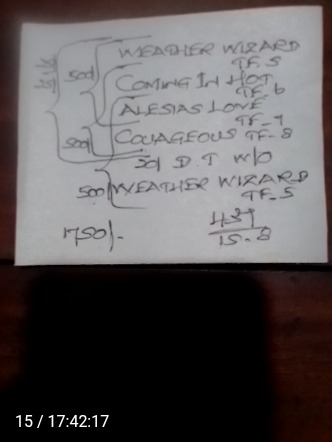 WEATHER WIZARD
TF-5
500/ COMING IN HOT
TF-6
ALESIAS LOVE
TF-7
500/ COUAGEOUS TF-8
50/ D.T W/O
500/ WEATHER WIZARD
TF-5
1750/-
439
15-8
15 / 17:42:17